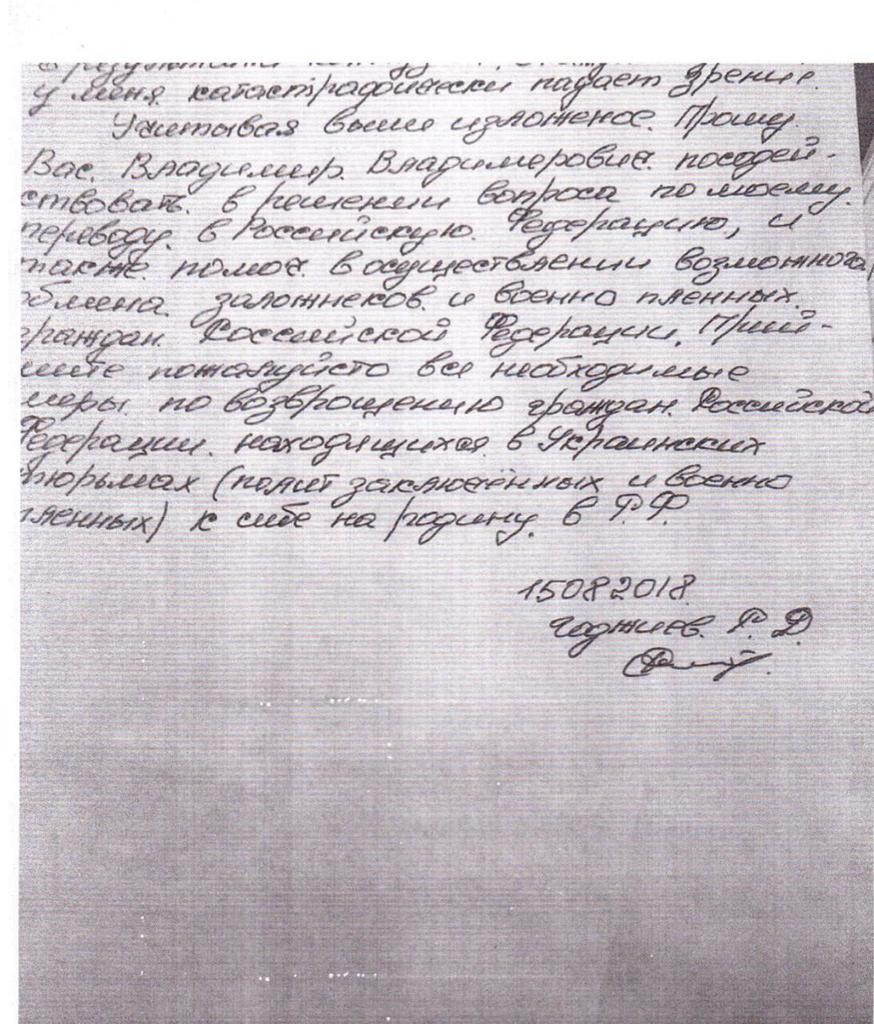 в результати
у меня. катастрафически падает зрение.
Учитывая выше изложеное. Прошу.
Вас. Владимир. Владимерович. посодей-
ствовать. в решении вопроса по моему.
переводу. в Российскую. Федерацию, и
также. помоч. в осуществлении возможнога
обмина. заложнеков. и военно пленных.
граждан. Российской Федерации. Прий-
мите пожалуйсто все необходимые
меры. по возврощению граждан. Российской
Федерации. находящихся. в Украинских
тюрьмах (полит заключённых и военно
пленных) к себе на родину. в Р.Ф.
15082018.
Гаджиев. Р. Д